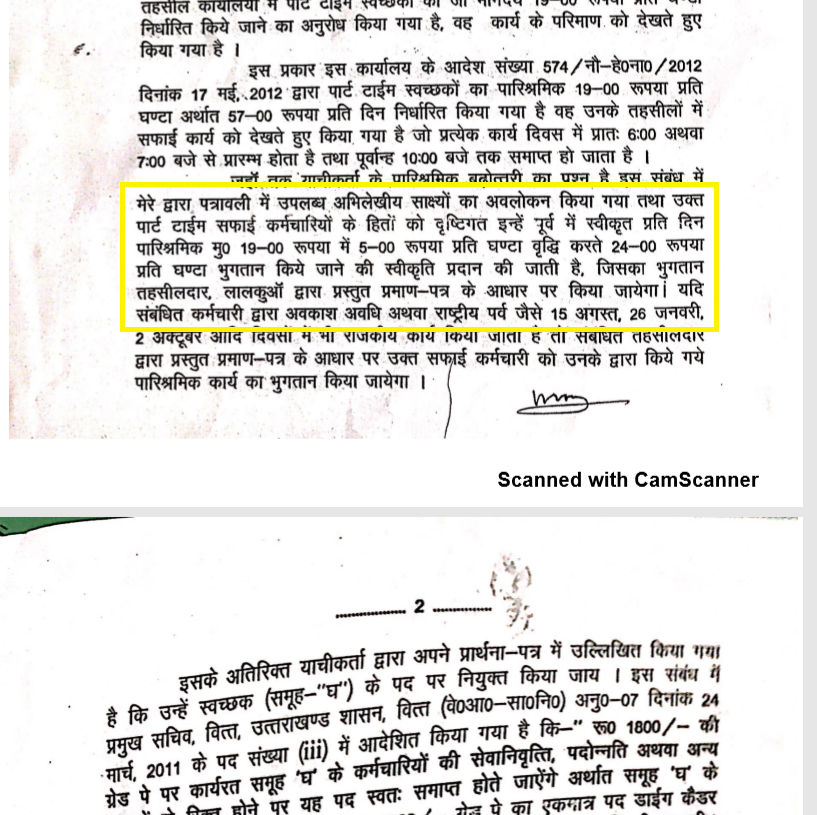 तहसील कार्यालयों में पार्ट टाईम स्वच्छकों को जो मानदेय 19–00 रूपया प्रति घण्टा
निर्धारित किये जाने का अनुरोध किया गया है, वह कार्य के परिमाण को देखते हुए
किया गया है ।
इस प्रकार इस कार्यालय के आदेश संख्या 574/नौ–हे०ना०/2012
दिनांक 17 मई, 2012 द्वारा पार्ट टाईम स्वच्छकों का पारिश्रमिक 19–00 रूपया प्रति
घण्टा अर्थात 57–00 रूपया प्रति दिन निर्धारित किया गया है वह उनके तहसीलों में
सफाई कार्य को देखते हुए किया गया है जो प्रत्येक कार्य दिवस में प्रातः 6:00 अथवा
7:00 बजे से प्रारम्भ होता है तथा पूर्वान्ह 10:00 बजे तक समाप्त हो जाता है ।
जहाँ तक याचीकर्ता के पारिश्रमिक बढोत्तरी का प्रश्न है इस संबंध में
मेरे द्वारा पत्रावली में उपलब्ध अभिलेखीय साक्ष्यों का अवलोकन किया गया तथा उक्त
पार्ट टाईम सफाई कर्मचारियों के हितों को दृष्टिगत इन्हें पूर्व में स्वीकृत प्रति दिन
पारिश्रमिक मु0 19–00 रूपया में 5–00 रूपया प्रति घण्टा वृद्धि करते 24–00 रूपया
प्रति घण्टा भुगतान किये जाने की स्वीकृति प्रदान की जाती है, जिसका भुगतान
तहसीलदार, लालकुऑ द्वारा प्रस्तुत प्रमाण–पत्र के आधार पर किया जायेगा। यदि
संबंधित कर्मचारी द्वारा अवकाश अवधि अथवा राष्ट्रीय पर्व जैसे 15 अगस्त, 26 जनवरी,
2 अक्टूबर आदि दिवसों में भी राजकीय कार्य किया जाता है तो संबंधित तहसीलदार
द्वारा प्रस्तुत प्रमाण–पत्र के आधार पर उक्त सफाई कर्मचारी को उनके द्वारा किये गये
पारिश्रमिक कार्य का भुगतान किया जायेगा ।
Scanned with CamScanner
............... 2 ...............
इसके अतिरिक्त याचीकर्ता द्वारा अपने प्रार्थना–पत्र में उल्लिखित किया गया
है कि उन्हें स्वच्छक (समूह–"घ") के पद पर नियुक्त किया जाय । इस संबंध में
प्रमुख सचिव, वित्त, उत्तराखण्ड शासन, वित्त (वे0आ0–सा0नि0) अनु0–07 दिनांक 24
मार्च, 2011 के पद संख्या (iii) में आदेशित किया गया है कि–" रू0 1800/– की
ग्रेड पे पर कार्यरत समूह 'घ' के कर्मचारियों की सेवानिवृत्ति, पदोन्नति अथवा अन्य
रिक्त होने पर यह पद स्वतः समाप्त होते जाऐंगे अर्थात समूह 'घ' के
ग्रेड पे का एकमात्र पद डाईग कैडर